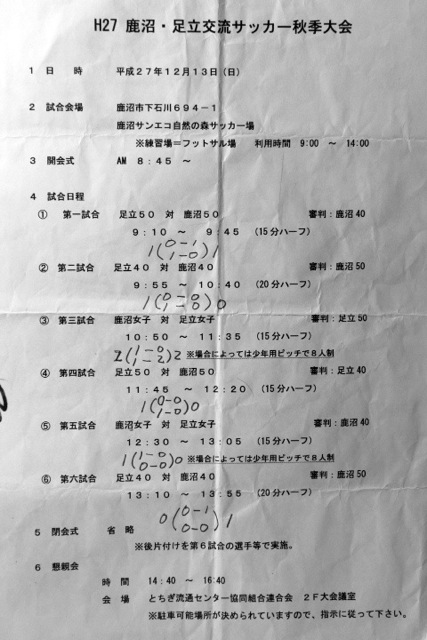 H27 鹿沼・足立交流サッカー秋季大会
1 日 時 平成27年12月13日(日)
2 試合会場 鹿沼市下石川694-1
鹿沼サンエコ自然の森サッカー場
※練習場=フットサル場 利用時間 9:00 ~ 14:00
3 開会式 AM 8:45 ~
4 試合日程
① 第一試合 足立50 対 鹿沼50 審判:鹿沼40
9:10 ~ 9:45 (15分ハーフ)
1(0-1 1-0)1
② 第二試合 足立40 対 鹿沼40 審判:鹿沼50
9:55 ~ 10:40 (20分ハーフ)
1(0-0 1-0)0
③ 第三試合 鹿沼女子 対 足立女子 審判:足立50
10:50 ~ 11:35 (15分ハーフ)
2(1-0 1-2)2 ※場合によっては少年用ピッチで8人制
④ 第四試合 足立50 対 鹿沼50 審判:足立40
11:45 ~ 12:20 (15分ハーフ)
1(0-0 1-0)0
⑤ 第五試合 鹿沼女子 対 足立女子 審判:鹿沼40
12:30 ~ 13:05 (15分ハーフ)
1(1-0 0-0)0 ※場合によっては少年用ピッチで8人制
⑥ 第六試合 足立40 対 鹿沼40 審判:鹿沼50
13:10 ~ 13:55 (20分ハーフ)
0(0-1 0-0)1
5 閉会式 省 略
※後片付けを第6試合の選手等で実施。
6 懇親会
時 間 14:40 ~ 16:40
会 場 とちぎ流通センター協同組合連合会 2F大会議室
※駐車可能場所が決められていますので、指示に従って下さい。